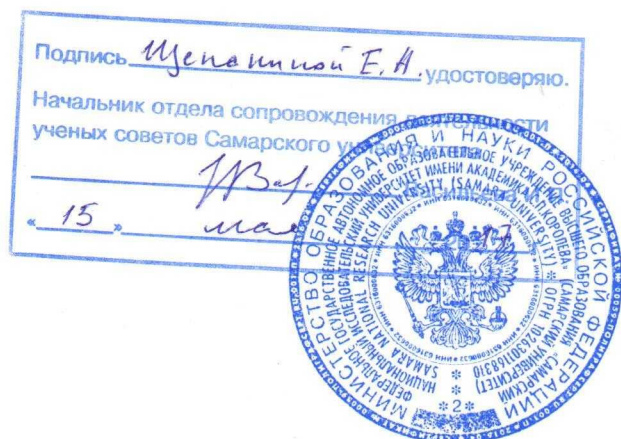 Подпись Щепаниной Е.А. удостоверяю.
Начальник отдела сопровождения деятельности
ученых советов Самарского университета
« 15 » мая 17
МИНИСТЕРСТВО ОБРАЗОВАНИЯ И НАУКИ РОССИЙСКОЙ ФЕДЕРАЦИИ
ФЕДЕРАЛЬНОЕ ГОСУДАРСТВЕННОЕ АВТОНОМНОЕ ОБРАЗОВАТЕЛЬНОЕ УЧРЕЖДЕНИЕ ВЫСШЕГО ОБРАЗОВАНИЯ «САМАРСКИЙ
НАЦИОНАЛЬНЫЙ ИССЛЕДОВАТЕЛЬСКИЙ УНИВЕРСИТЕТ ИМЕНИ АКАДЕМИКА С.П. КОРОЛЕВА» (САМАРСКИЙ УНИВЕРСИТЕТ)
SAMARA NATIONAL RESEARCH UNIVERSITY (SAMARA UNIVERSITY) * ОГРН 1026301168310
* ИНН 6316000632 *
* 2 *